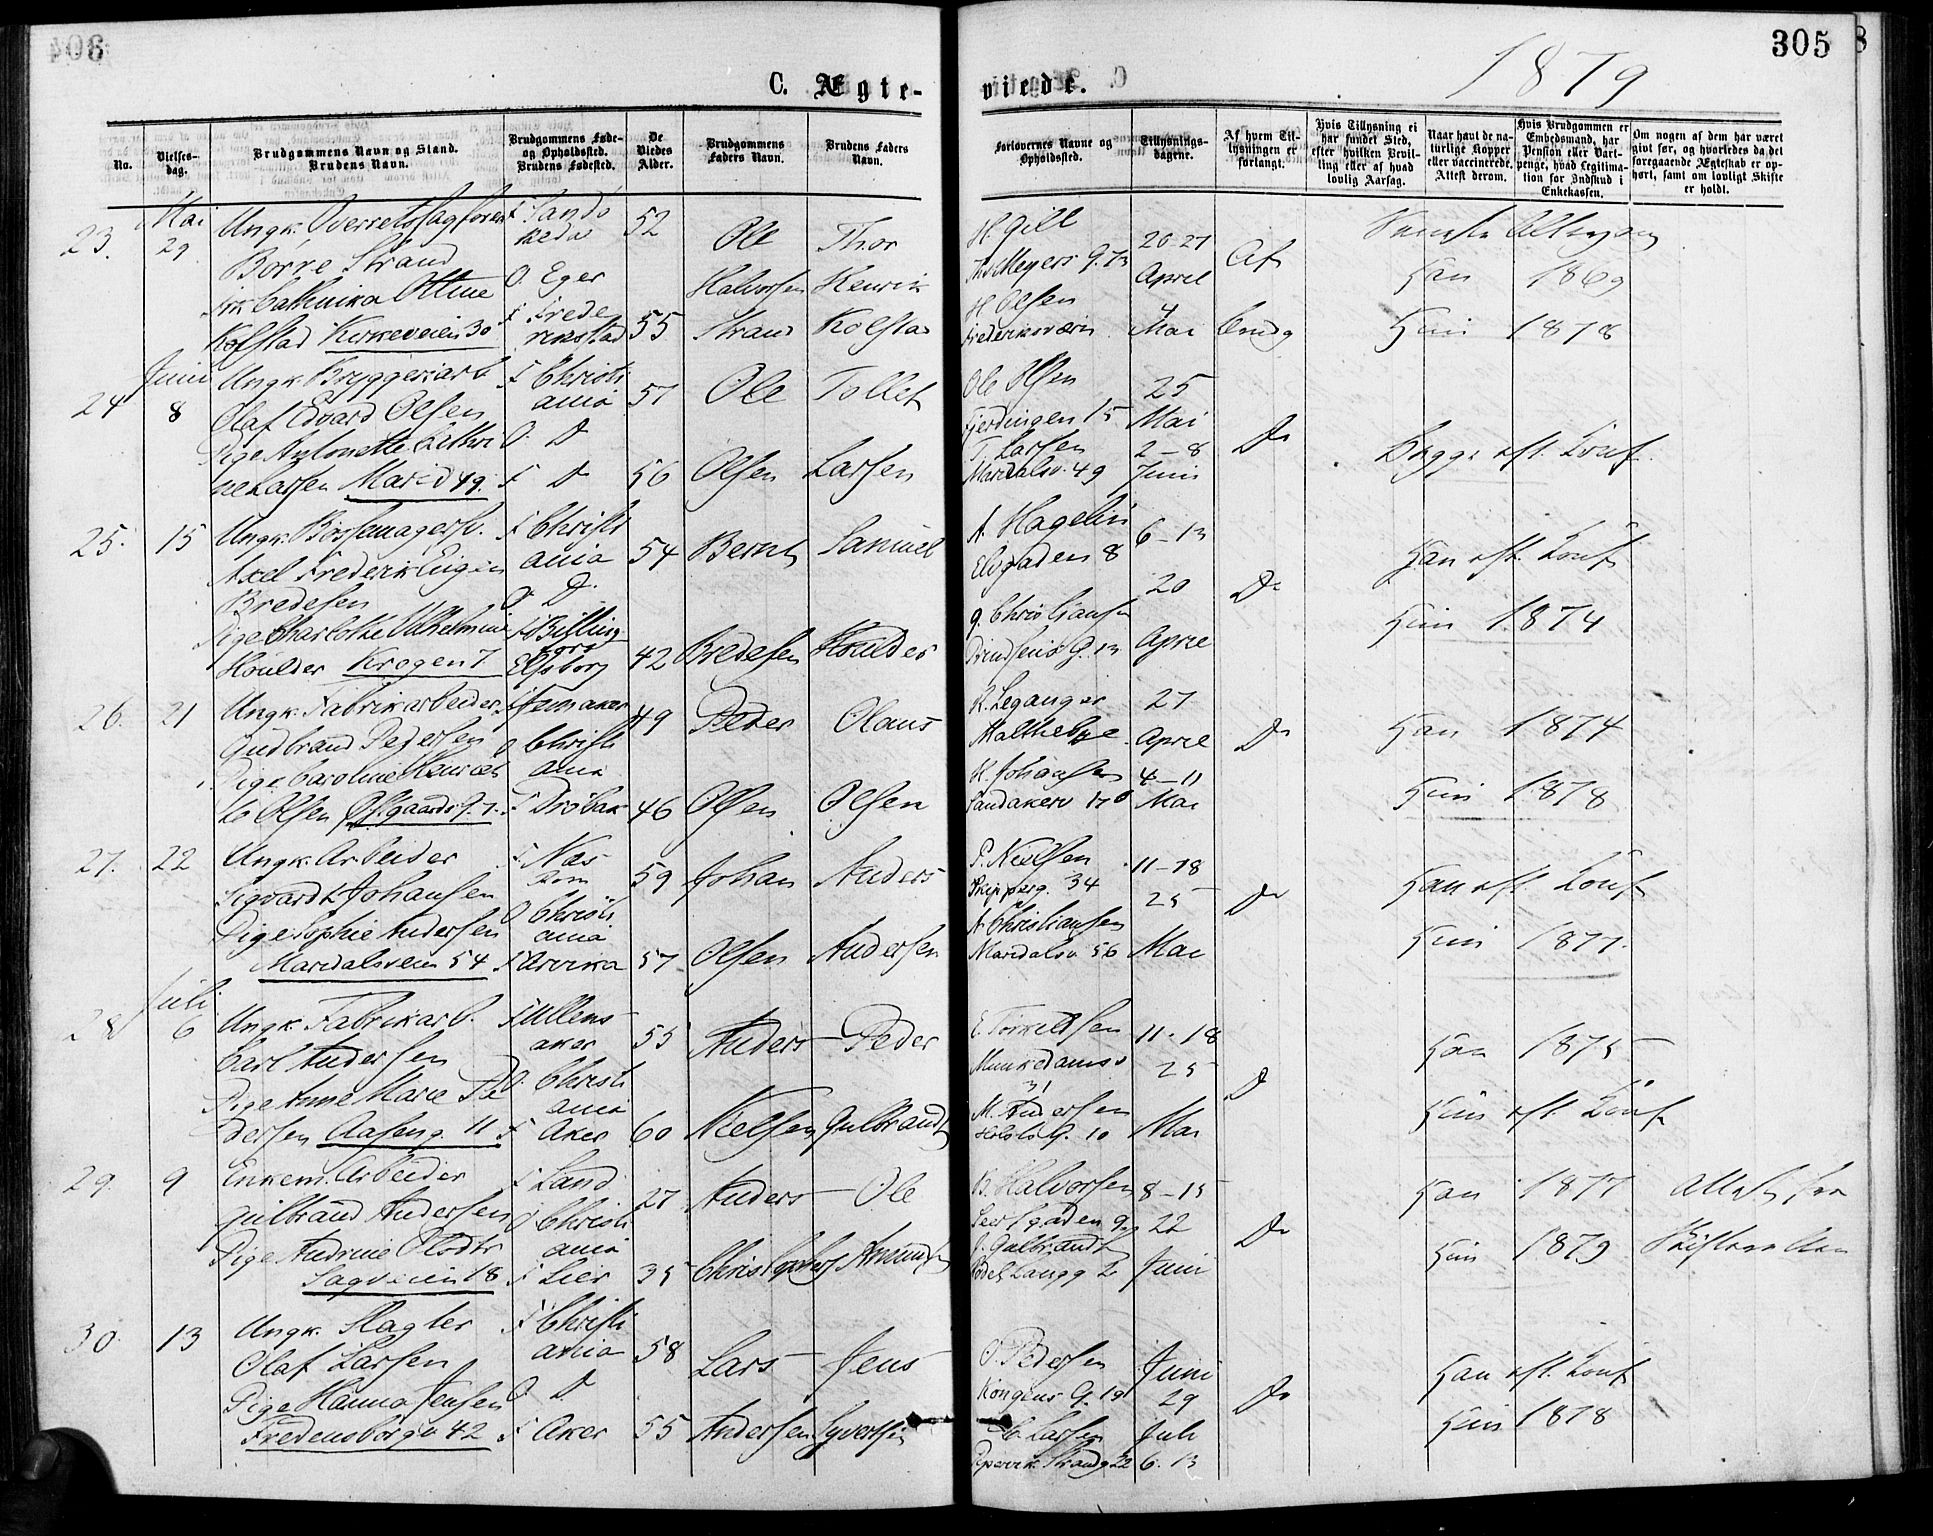 305
C. Ægte-
viede.
1879
No.
Vielses-
dag.
Brudgommens Navn og Stand.
Brudens Navn.
Brudgommens Føde-
og Opholdssted.
Brudens Fødested.
De
Viedes
Alder.
Brudgommens
Faders Navn.
Brudens Faders
Navn.
Forlovernes Navne og
Opholdssted.
Tillysnings-
dagene.
Af hvem Til-
lysningen er
forlangt.
Hvis Tillysning ei
har fundet Sted,
efter hvilken Bevil-
ling eller af hvad
lovlig Aarsag.
Naar havt de na-
turlige Kopper
eller vaccinerede.
Attest derom.
Hvis Brudgommen er
Embedsmand, har
Pension eller Vart-
penge, hvad Legitima-
tion for Indskud i
Enkekassen.
Om nogen af dem har været
gift før, og hvorledes da det
foregaaende Ægteskab er op-
hørt, samt om lovligt Skifte
er holdt.
23. Mai 29
Ungk. Overretssagfører
Børre Strand
Cathinka Ottine
Kolstad Kirkeveien 30
F
O. Eger
F Frede
rikstad
52
55
Ole
Halvorsen
Strand
Thor
Henrik
Kolstad
H. Gill
Ths Meyers G. 73
H Olsen
Frederiksværn
20-27
April
4
Mai
Af
Han 1869
Hun 1878
24 Juni 8
Ungk. Bryggeriarb
Olaf Edvard Olsen
Pige Antonette Lethri
ne Larsen Marid 49.
F Christi
ania
O. D
F D
57
56
Ole
Olsen
Tollef
Larsen
Ole Olsen
Fjerdingen 15
T. Larsen
Maridalsv. 49
25
Mai
2-8
Juni
Do
Begge eft. Konf.
25. 15
Ungk. Børsemagersv.
Axel Frederik Eugen
Bredesen
Pige Charlotte Vilhelmine
Houlder Krogen 7
F Christi
ania
O. D.
Elfsborg
54
42
Bernt
Bredesen
Samuel
Houlder
A. Hagelin
Elvgaden 8
G. Christiansen
Prindsens G. 13
6-13
20
April
Do
Han eft. Konf
Hun 1874
26. 21
Ungk. Fabrikarbeider
Gudbrand Pedersen
Pige Caroline Henriet
te Olsen
O Christi
ania
F Drøbak
49
46
Peder
Olsen
Olaus
Olsen
K. Leganger
Malthebye
H. Johansen
Sandakerv
27
April
4-11
Mai
Do
Han 1874
Hun 1878
27. 22
Ungk. Arbeider
Sigvardt Johansen
Pige Sophie Andersen
Maridalsveien 54
F. Næs
Rom
O Christi
ania
F Arvika
59
57
Johan
Olsen
Anders
Andersen
P. Nielsen
Skipperg. 34
A. Christiansen
Maridalsv 56
11-18
25
Mai
Do
Han eft. Konf
Hun 1877.
28 Juli 6
Ungk. Fabrikarb.
Carl Andersen
Pige Anne Marie Pe
dersen Aaseng. 11
F Ullens
aker
O. Christi
ania
F Aker
55
60
Anders
Nielsen
Peder
Gulbrandsen
E. Torkeldsen
Munkedamsv
31
M. Andersen
Holsts G. 10
11-18
25
Mai
D
Han 1875
Hun eft. Konf
29. 9
Enkem. Arbeider
Gulbrand Andersen
Pige Andrine
Sagveien 18
F Land
O Christi
ania
F Lier
27
35
Anders
Christophersen
Ole
Amundsen
B. Halvorsen
J. Gulbrandsen
8-15
22
Juni
Do
Han 1877
Hun 1879
Attest fra
Skifteretten
30. 13
Ungk. Slagter
Olaf Larsen
Pige Hanna Jensen
Fredensborgv 42
F Christi
ania
O. D
F Aker
58
55
Lars
Andersen
Jens
Syvertsen
O. Pedersen
Kongens G. 19
C. Larsen
Pipervik. Strandg 22
Juni
29
Juli
6. 13
Do
Han eft. Konf
Hun 1878